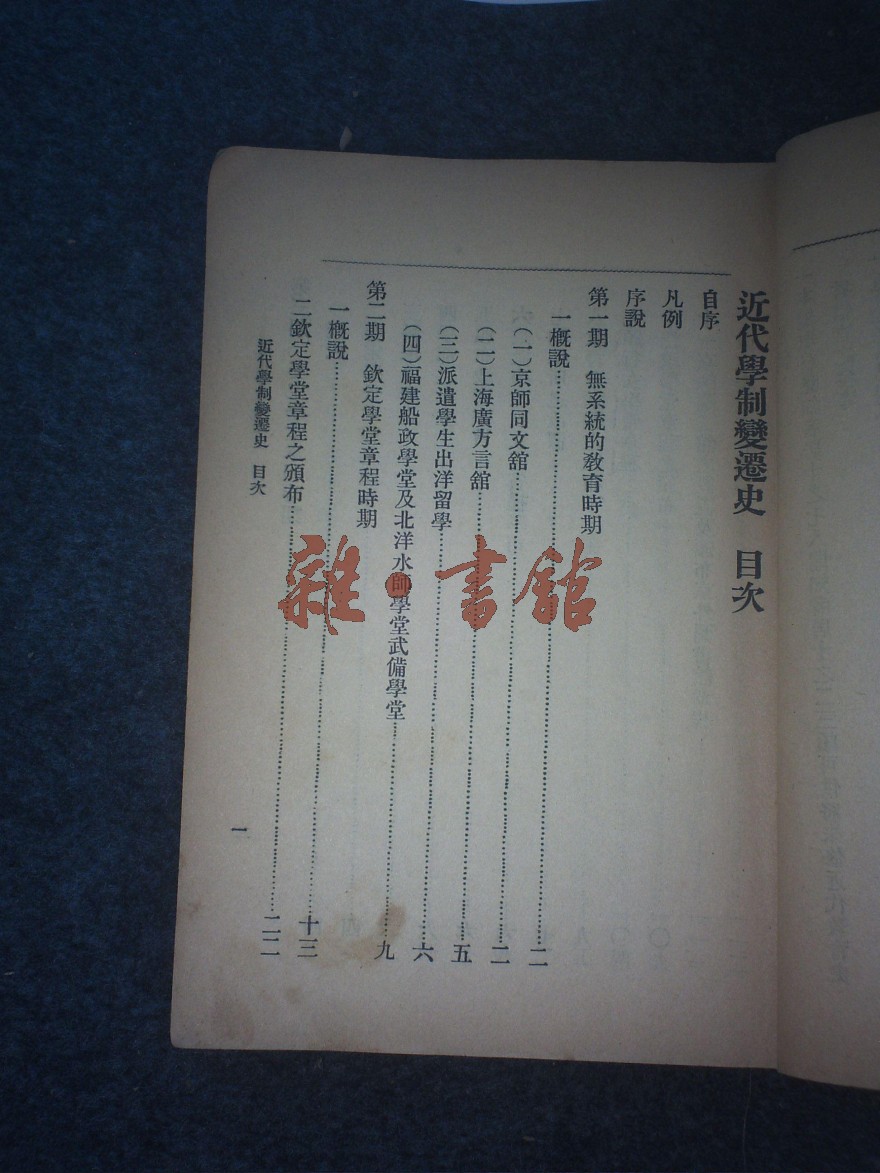 近代學制變遷史 目次
自序
凡例
序說
第一期 無系統的敎育時期
一概說……二
(一)京師同文舘……二
(二)上海廣方言舘……五
(三)派遣學生出洋留學……六
(四)福建船政學堂及北洋水師學堂武備學堂……九
第二期 欽定學堂章程時期
一概說……十三
二欽定學堂章程之頒布……二二
近代學制變遷史 目次
一
雜·書舘